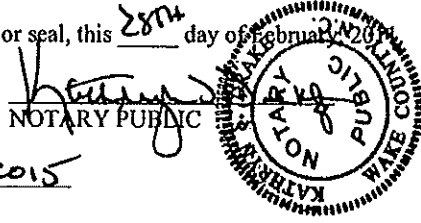 or seal, this 28th day of February, 201
NOTARY PUBLIC
2015
KATHRYN S. DRAKE
NOTARY
PUBLIC
WAKE COUNTY, N.C.